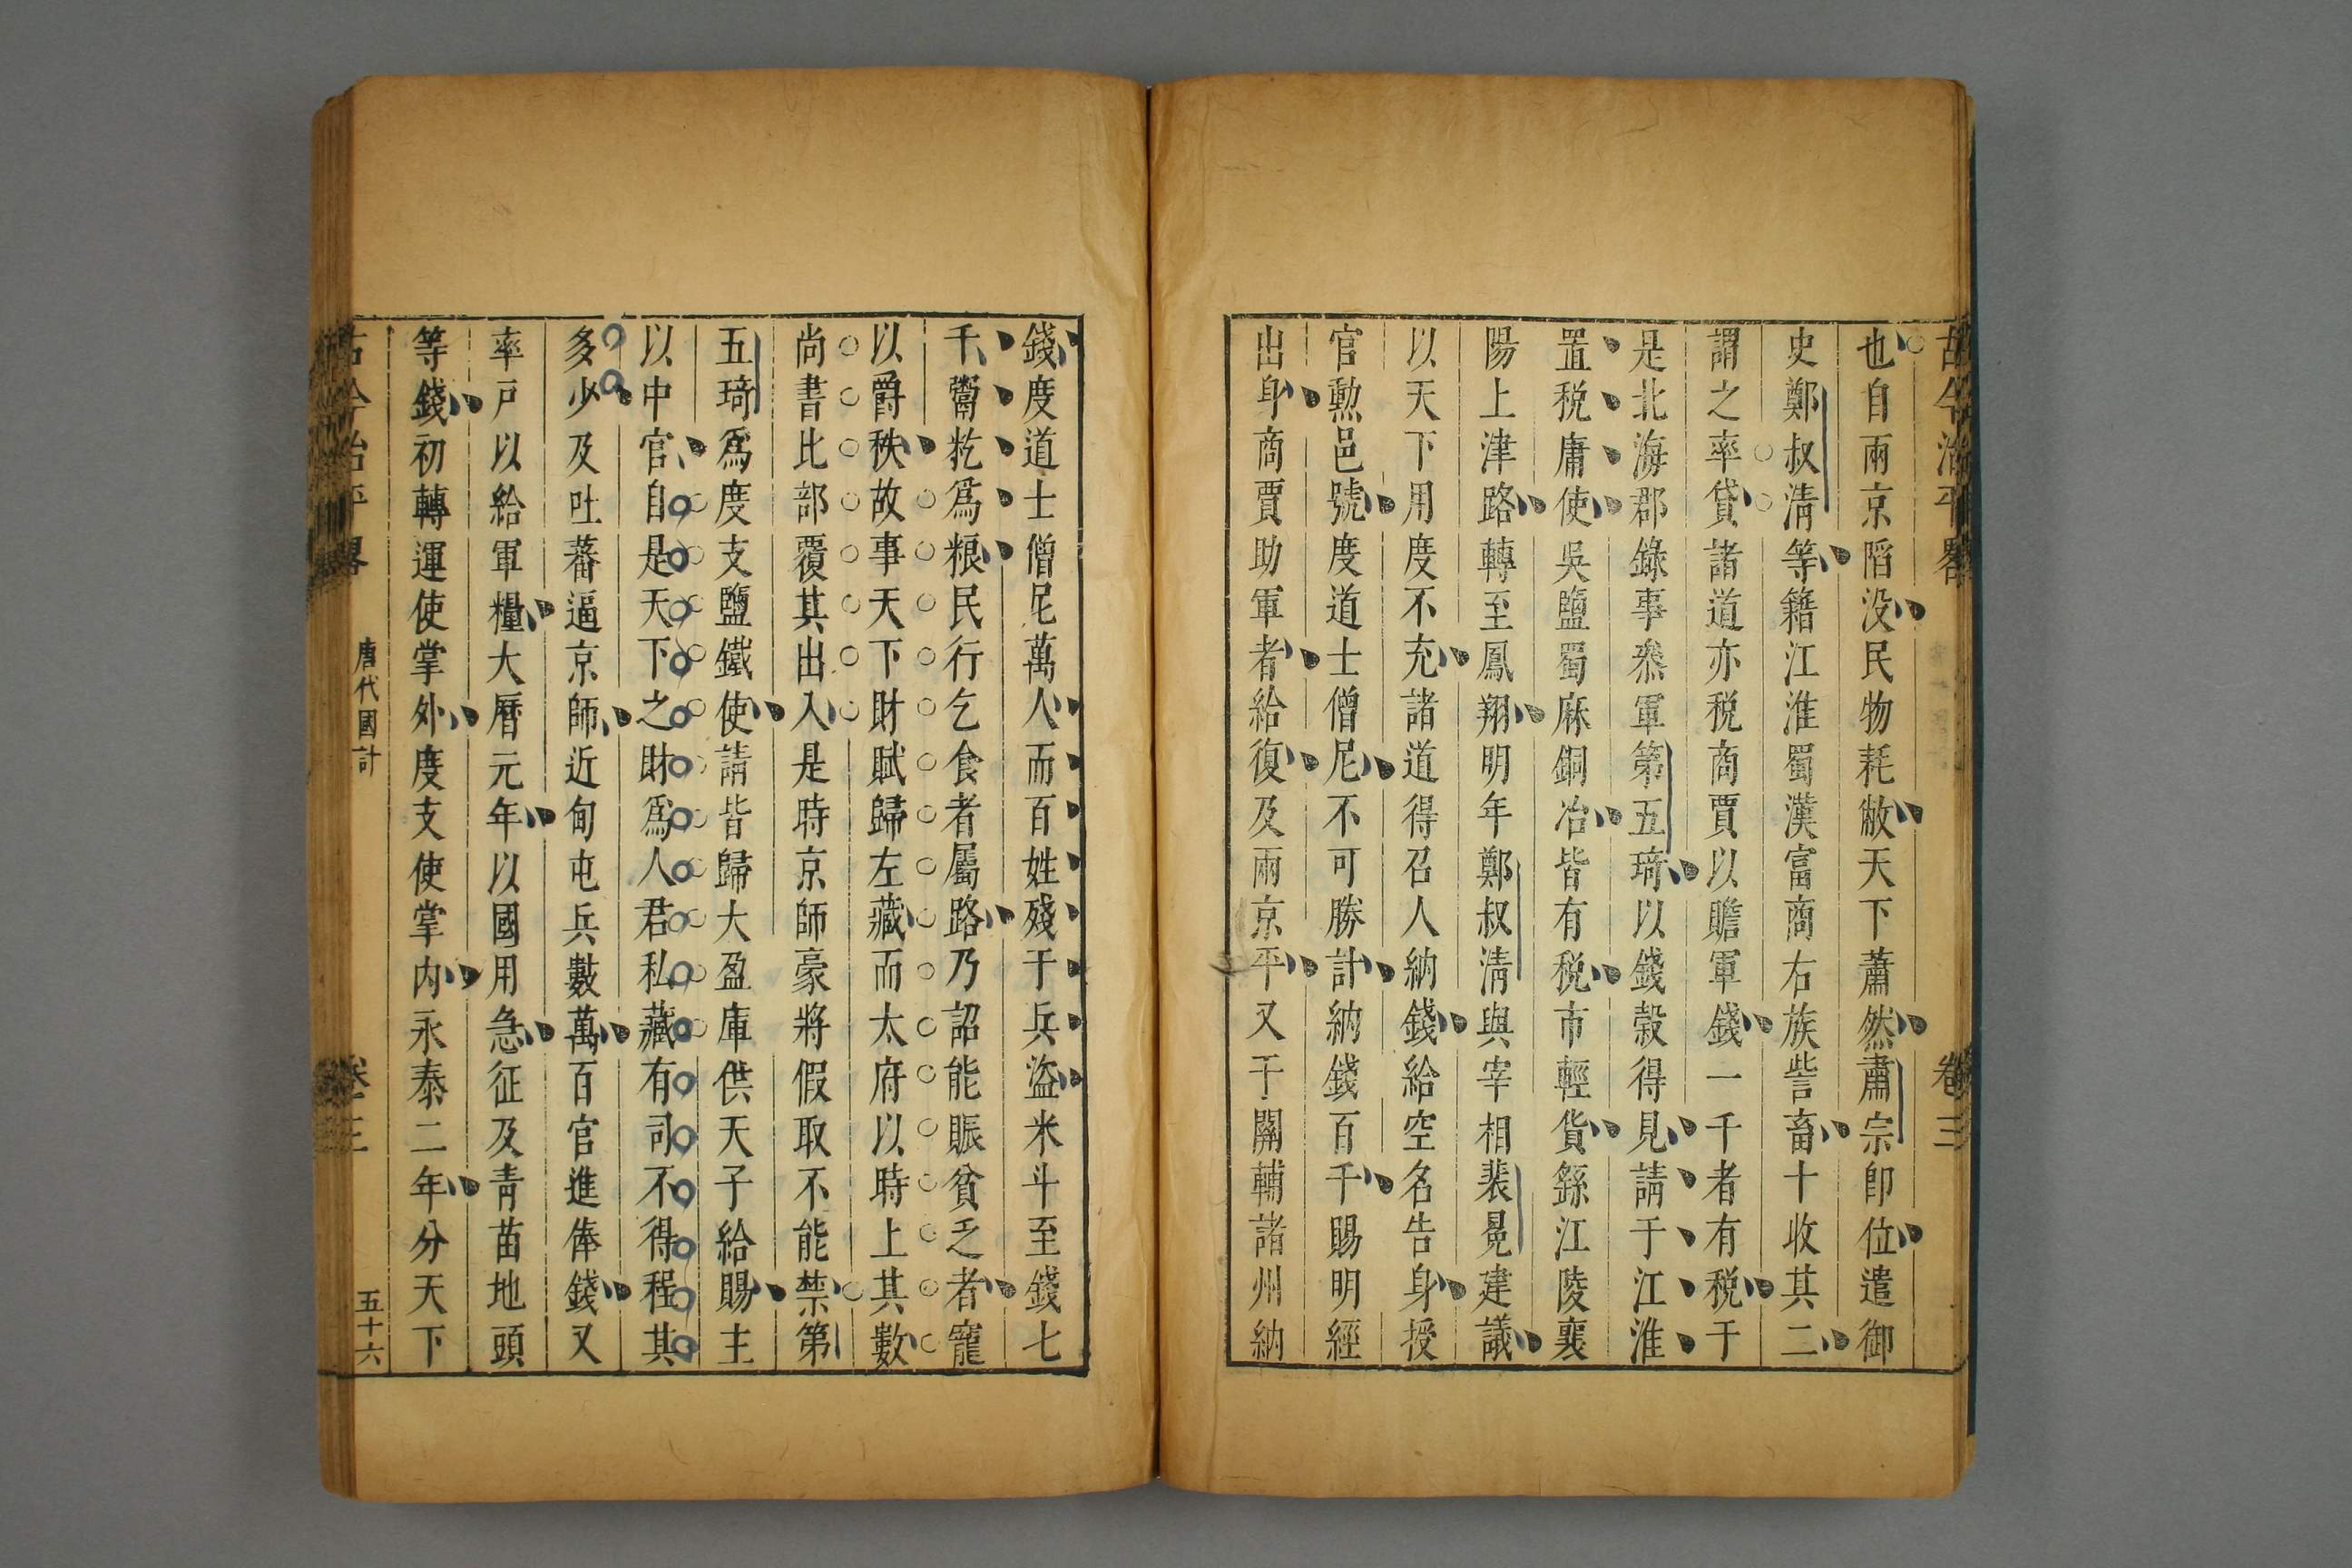 古今治平畧
卷三
也自兩京陷没民物耗敝天下蕭然肅宗卽位遣御
史鄭叔淸等籍江淮蜀漢富商右族訾畜十收其二
謂之率貸諸道亦税商賈以贍軍錢一千者有税于
是北海郡錄事叅軍第五琦以錢穀得見請于江淮
置税庸使吳鹽蜀麻銅冶皆有税市輕貨繇江陵襄
陽上津路轉至鳳翔明年鄭叔淸與宰相裴冕建議
以天下用度不充諸道得召人納錢給空名告身授
官勲邑號度道士僧尼不可勝計納錢百千賜明經
出身商賈助軍者給復及兩京平又于關輔諸州納
錢度道士僧尼萬人而百姓殘于兵盜米斗至錢七
千鬻籺爲粮民行乞食者屬路乃詔能賑貧乏者寵
以爵秩故事天下財賦歸左藏而太府以時上其數
尚書比部覆其出入是時京師豪將假取不能禁第
五琦爲度支鹽鐵使請皆歸大盈庫供天子給賜主
以中官自是天下之財爲人君私藏有司不得程其
多少及吐蕃逼京師近甸屯兵數萬百官進俸錢又
率戸以給軍糧大曆元年以國用急征及青苗地頭
等錢初轉運使掌外度支使掌内永泰二年分天下
古今治平畧
唐代國計
卷三
五十六